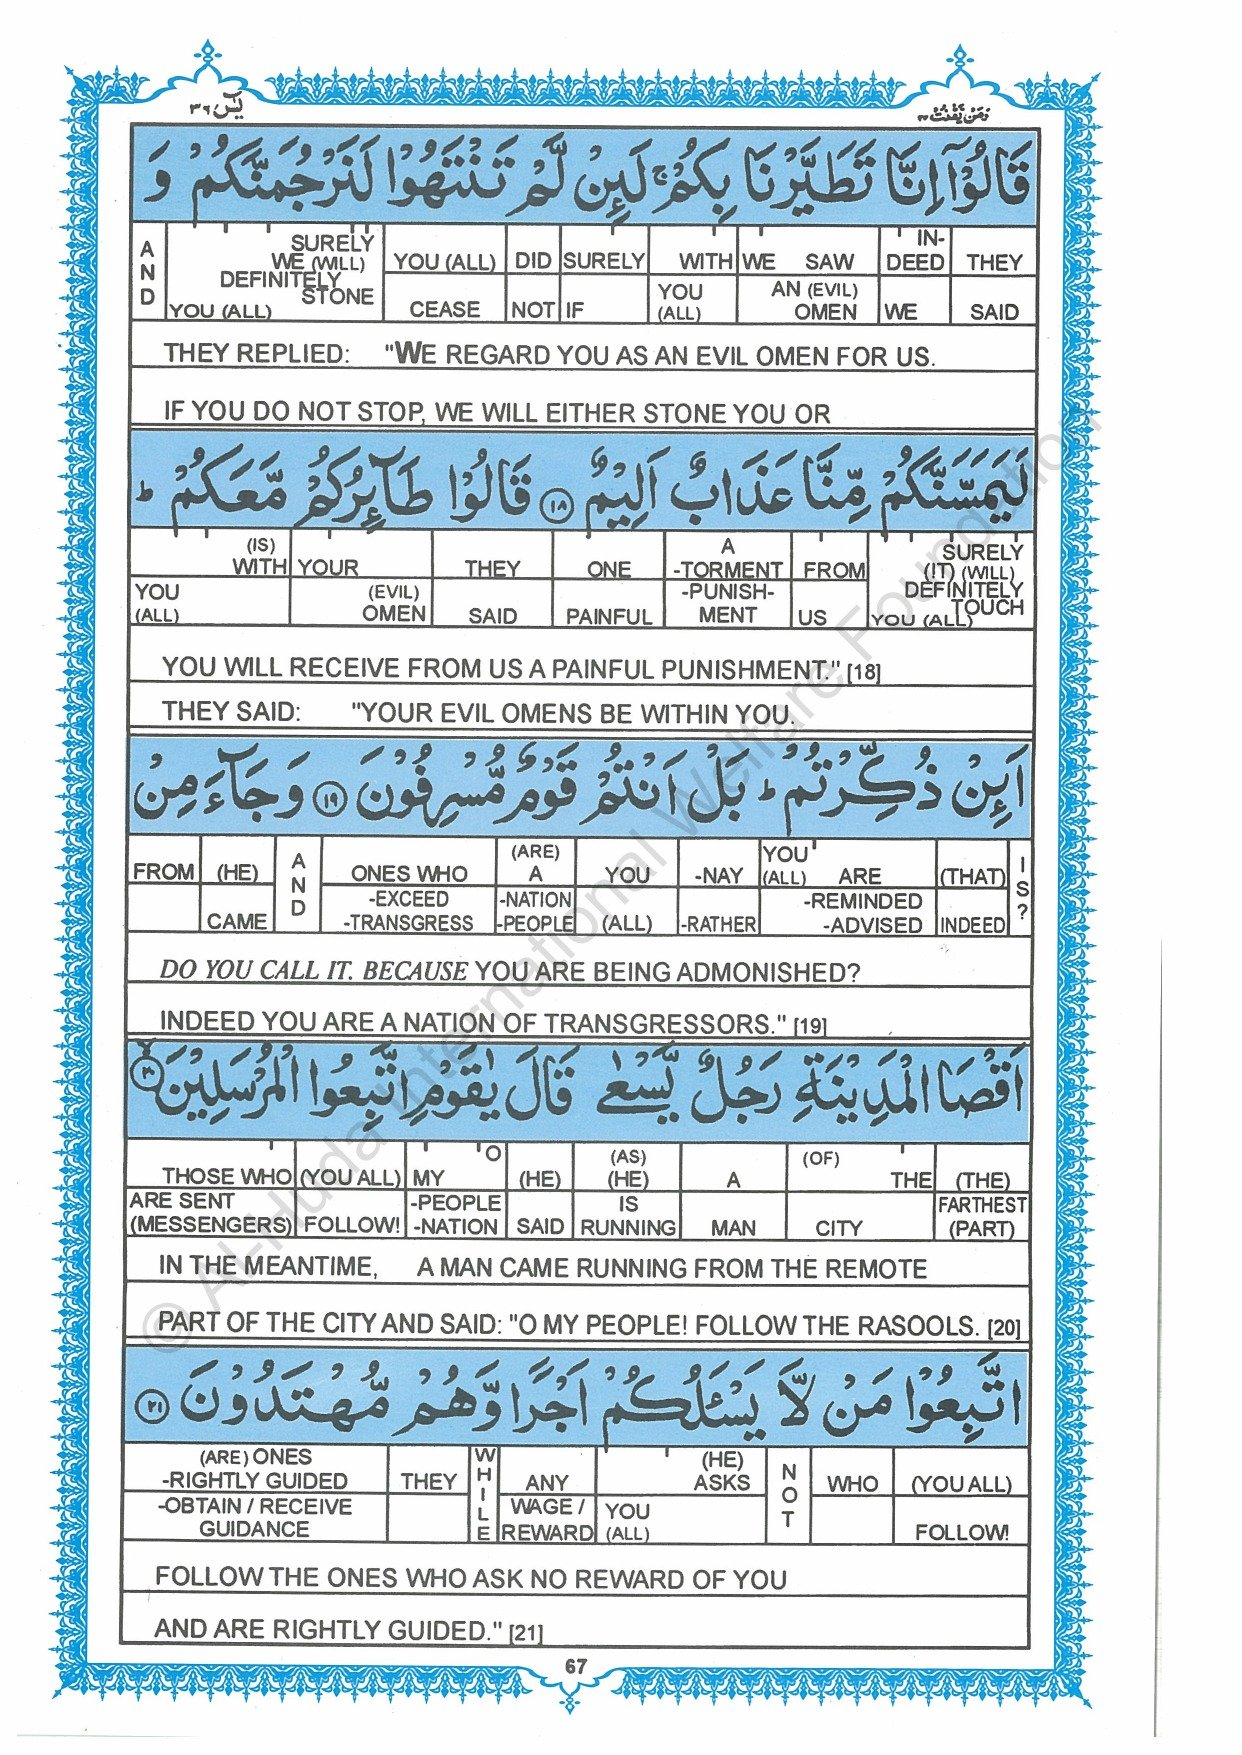 يٰسٓ ٣٦
وَمَنْ يَّقْنُتْ ٢٢
قَالُوْٓا اِنَّا تَطَيَّرْنَا بِكُمْ ۚ لَئِنْ لَّمْ تَنْتَهُوْا لَنَرْجُمَنَّكُمْ وَ
AND SURELY WE (WILL) DEFINITELY STONE YOU (ALL) YOU (ALL) DID SURELY WITH WE SAW IN-DEED THEY
CEASE NOT IF YOU (ALL) AN (EVIL) OMEN WE SAID
THEY REPLIED: "WE REGARD YOU AS AN EVIL OMEN FOR US.
IF YOU DO NOT STOP, WE WILL EITHER STONE YOU OR
لَيَمَسَّنَّكُمْ مِّنَّا عَذَابٌ اَلِيْمٌ ۝١٨ قَالُوْا طَآئِرُكُمْ مَّعَكُمْ ؕ
(IS) WITH YOUR THEY ONE A -TORMENT FROM SURELY (IT) (WILL) DEFINITELY TOUCH YOU (ALL)
YOU (ALL) (EVIL) OMEN SAID PAINFUL -PUNISH-MENT US
YOU WILL RECEIVE FROM US A PAINFUL PUNISHMENT." [18]
THEY SAID: "YOUR EVIL OMENS BE WITHIN YOU.
اَئِنْ ذُكِّرْتُمْ ؕ بَلْ اَنْتُمْ قَوْمٌ مُّسْرِفُوْنَ ۝١٩ وَجَآءَ مِنْ
FROM (HE) AND ONES WHO (ARE) A YOU -NAY YOU (ALL) ARE (THAT) IS?
CAME -EXCEED -TRANSGRESS -NATION -PEOPLE (ALL) -RATHER -REMINDED -ADVISED INDEED
DO YOU CALL IT. BECAUSE YOU ARE BEING ADMONISHED?
INDEED YOU ARE A NATION OF TRANSGRESSORS." [19]
اَقْصَا الْمَدِيْنَةِ رَجُلٌ يَّسْعٰى قَالَ يٰقَوْمِ اتَّبِعُوا الْمُرْسَلِيْنَ ۝٢٠
THOSE WHO (YOU ALL) MY O (HE) (AS) (HE) A (OF) THE (THE)
ARE SENT (MESSENGERS) FOLLOW! -PEOPLE -NATION SAID IS RUNNING MAN CITY FARTHEST (PART)
IN THE MEANTIME, A MAN CAME RUNNING FROM THE REMOTE
PART OF THE CITY AND SAID: "O MY PEOPLE! FOLLOW THE RASOOLS. [20]
اتَّبِعُوْا مَنْ لَّا يَسْئَلُكُمْ اَجْرًا وَّهُمْ مُّهْتَدُوْنَ ۝٢١
(ARE) ONES -RIGHTLY GUIDED THEY WHILE ANY (HE) ASKS NOT WHO (YOU ALL)
-OBTAIN / RECEIVE GUIDANCE WAGE / REWARD YOU (ALL) FOLLOW!
FOLLOW THE ONES WHO ASK NO REWARD OF YOU
AND ARE RIGHTLY GUIDED." [21]
67
© Al-Huda International Welfare Foundation